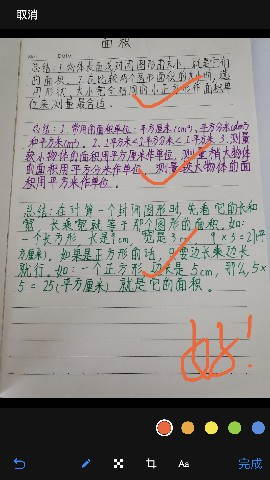 取消
面积
总结:1.物体表面或封闭图形的大小,就是它们
的面积。2.在比较两个图形面积的大小时,选
用形状、大小完全相同的小正方形作面积单
位来测量最合适。
总结:1.常用的面积单位:平方厘米(cm²)、平方分米(dm²)
和平方米(m²)。2.1平方厘米<1平方分米<1平方米 3.测量
较小物体的面积用平方厘米作单位,测量稍大物体
的面积用平方分米作单位,测量较大物体的面
积用平方米作单位。
总结:在计算一个封闭图形时,先看它的长和
宽,长乘宽就等于那个图形的面积。如:
一个长方形,长是9cm,宽是3cm,9×3=27(平
方厘米)。如果是正方形的话,只要边长乘边长
就行。如:一个正方形,边长是5cm,那么5×
5=25(平方厘米)就是它的面积。
好!
Aa
完成